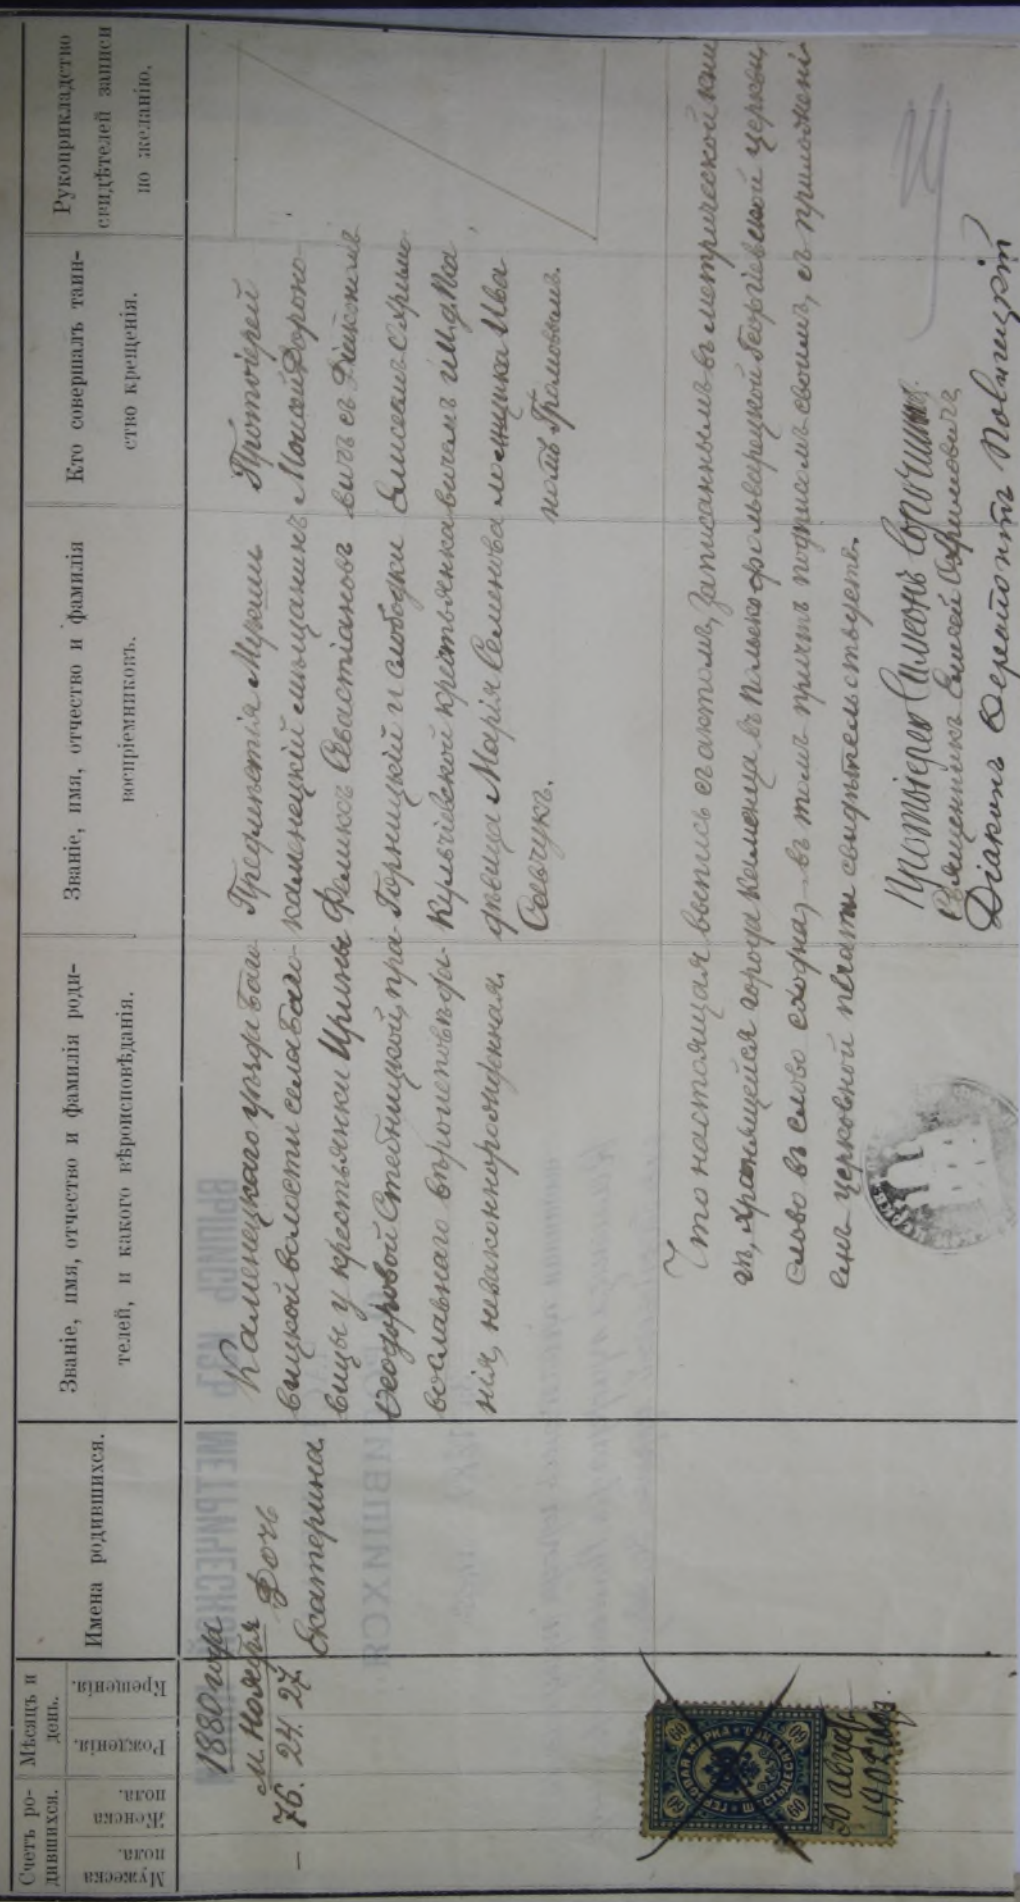 Счетъ родившихся.
Мужеска пола.
Женска пола.
Мѣсяцъ и день.
Рожденія.
Крещенія.
Имена родившихся.
Званіе, имя, отчество и фамилія роди-
телей, и какого вѣроисповѣданія.
Званіе, имя, отчество и фамилія
воспріемниковъ.
Кто совершалъ таин-
ство крещенія.
Рукоприкладство
свидѣтелей записи
по желанію.
1880 года
м. Ноября
— 76. 24. 27
Дочь
Екатерина.
Каменецкаго уѣзда
вицкой волости села
вицы у крестьянки Ирины
Ѳеодоровой Стебницкой, пра-
вославнаго вѣроисповѣда-
нія, незаконнорожденная.
каменецкій мѣщанинъ
Феликсъ Севастіановъ
Горницкій и слободки
Кульчіевской крестьянка
Марія Семенова
Савчукъ.
Протоіерей
Моисей Дороно-
вичъ съ Діакономъ
Елисеемъ
вичемъ и И. д. Пса
ломщика Ива
номъ Громовымъ.
Что настоящая выпись съ актомъ, записаннымъ въ метрической кни
гѣ, хранящейся города Каменца въ Польскофольварецкой Георгіевской церкви,
слово въ слово сходна, въ томъ причтъ подписомъ своимъ, съ приложені-
емъ церковной печати свидѣтельствуетъ.
Протоіерей Симеонъ
Священникъ Елисей
Діаконъ Ферапонтъ Повницкій
ГЕРБОВАЯ МАРКА
60
60
60
60
30 августа
1905 года